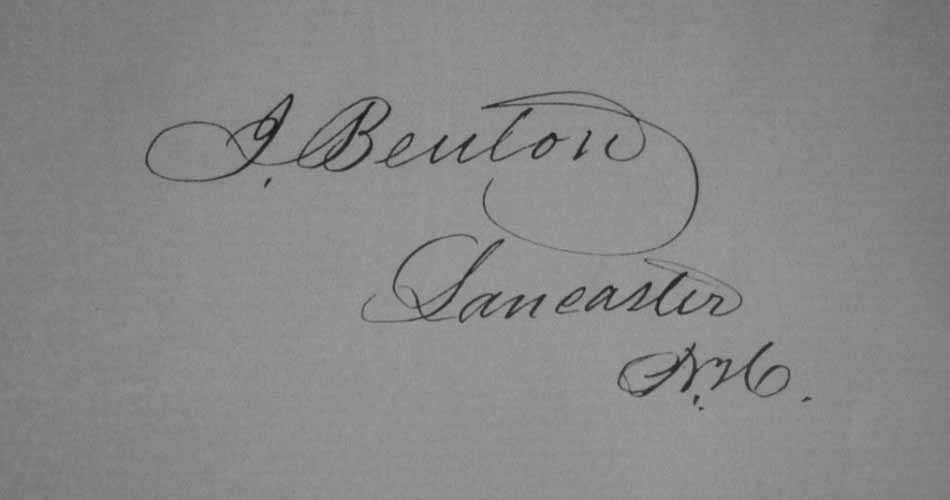 J. Benton
Lancaster
N.H.